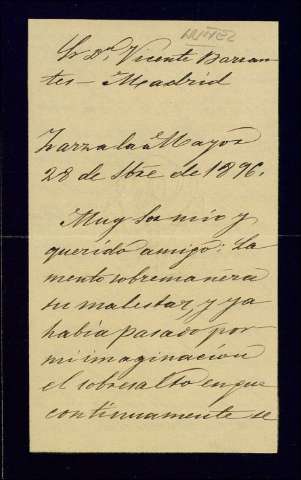 Sr Dn Vicente Barran
tes — Madrid
Zarza la Mayor
28 de Sbre de 1896.
Muy Sor mio y
querido amigo: La
mento sobremanera
su malestar, y ya
habia pasado por
mi imaginación
el sobresalto en que
continuamente se